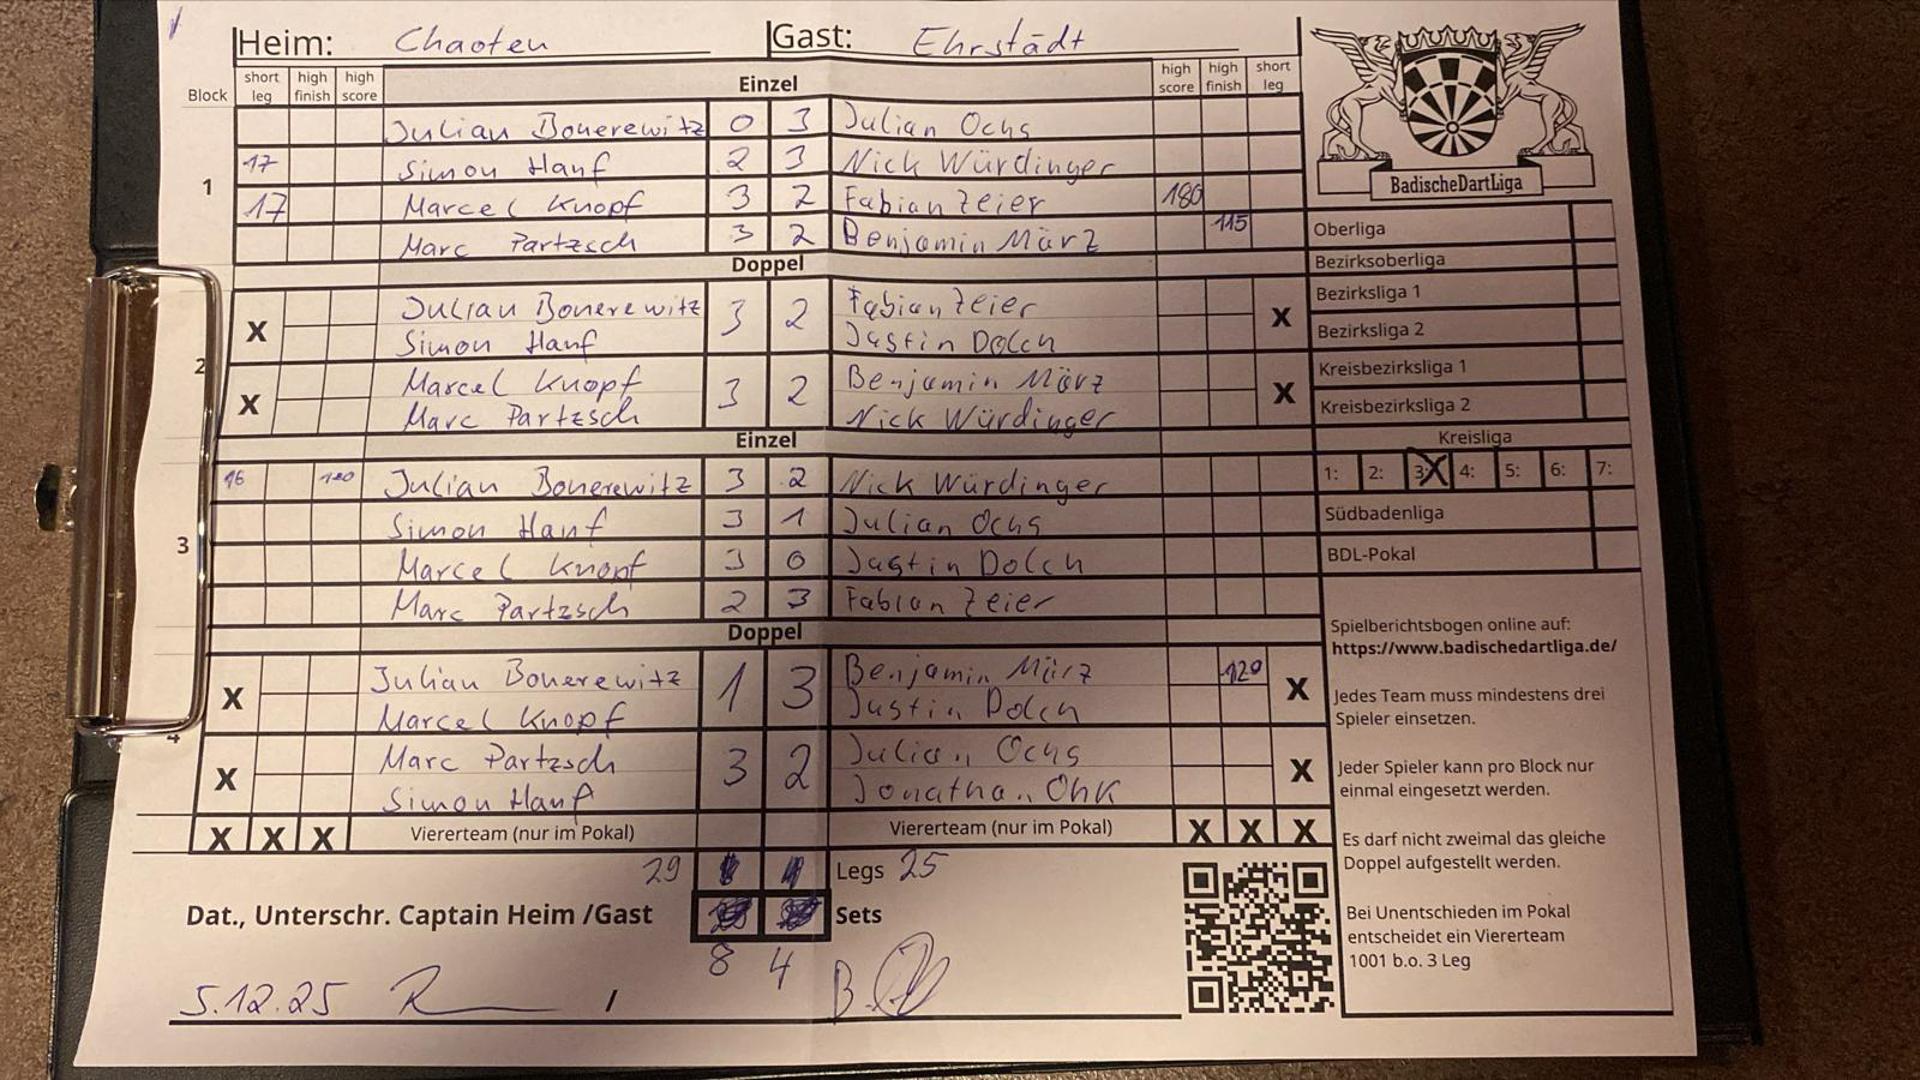 Heim: Chaoten Gast: Ehrstädt
Block short leg high finish high score Einzel high score high finish short leg
1
Julian Bonerewitz 0 3 Julian Ochs
17 Simon Hanf 2 3 Nick Würdinger
17 Marcel Knopf 3 2 Fabian Zeier 180
Marc Partzsch 3 2 Benjamin März 115
Doppel
2
X Julian Bonerewitz 3 2 Fabian Zeier X
Simon Hanf Justin Dolch
X Marcel Knopf 3 2 Benjamin März X
Marc Partzsch Nick Würdinger
Einzel
3
16 180 Julian Bonerewitz 3 2 Nick Würdinger
Simon Hanf 3 1 Julian Ochs
Marcel Knopf 3 0 Justin Dolch
Marc Partzsch 2 3 Fabian Zeier
Doppel
4
X Julian Bonerewitz 1 3 Benjamin März 120 X
Marcel Knopf Justin Dolch
X Marc Partzsch 3 2 Julian Ochs X
Simon Hanf Jonathan Ohk
X X X Viererteam (nur im Pokal) Viererteam (nur im Pokal) X X X
29 Legs 25
Dat., Unterschr. Captain Heim /Gast Sets
8 4
5.12.25 / B.
BadischeDartLiga
Oberliga
Bezirksoberliga
Bezirksliga 1
Bezirksliga 2
Kreisbezirksliga 1
Kreisbezirksliga 2
Kreisliga
1: 2: 3: X 4: 5: 6: 7:
Südbadenliga
BDL-Pokal
Spielberichtsbogen online auf:
https://www.badischedartliga.de/
Jedes Team muss mindestens drei
Spieler einsetzen.
Jeder Spieler kann pro Block nur
einmal eingesetzt werden.
Es darf nicht zweimal das gleiche
Doppel aufgestellt werden.
Bei Unentschieden im Pokal
entscheidet ein Viererteam
1001 b.o. 3 Leg